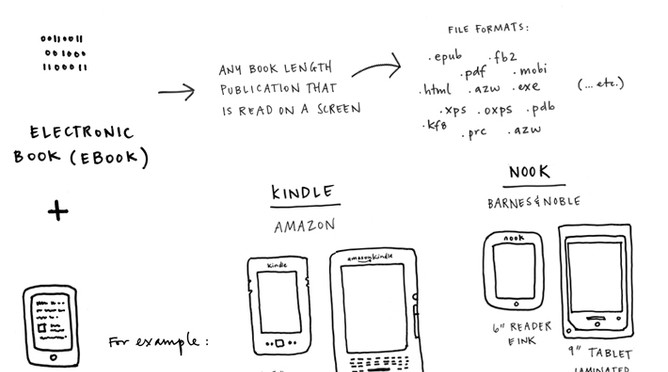 00110011
001000
1100011
ELECTRONIC
BOOK (EBOOK)
+
ANY BOOK LENGTH
PUBLICATION THAT
IS READ ON A SCREEN
FILE FORMATS:
.epub .fb2
.pdf .mobi
.html .azw .exe
.xps .oxps .pdb
.kf8 .prc .azw
(...etc.)
For example:
KINDLE
AMAZON
kindle
amazonkindle
NOOK
BARNES&NOBLE
nook
6" READER
E INK
9" TABLET
LAMINATED